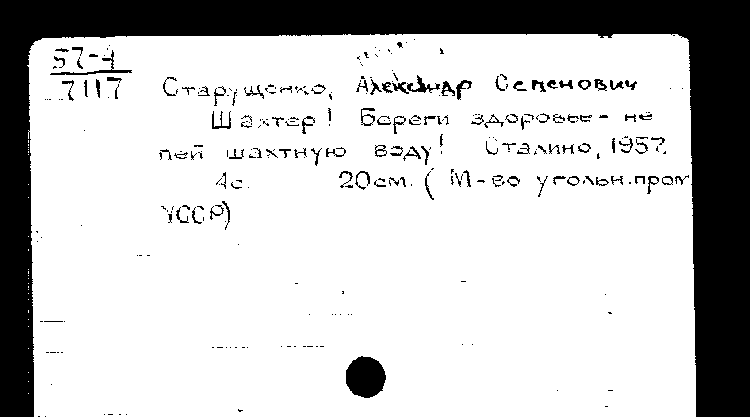 57-4
7117
Старущенко, Александр Семенович
Шахтер! Береги здоровье - не
пей шахтную воду! Сталино, 1957.
4с. 20см. (М-во угольн. пром.
УССР)